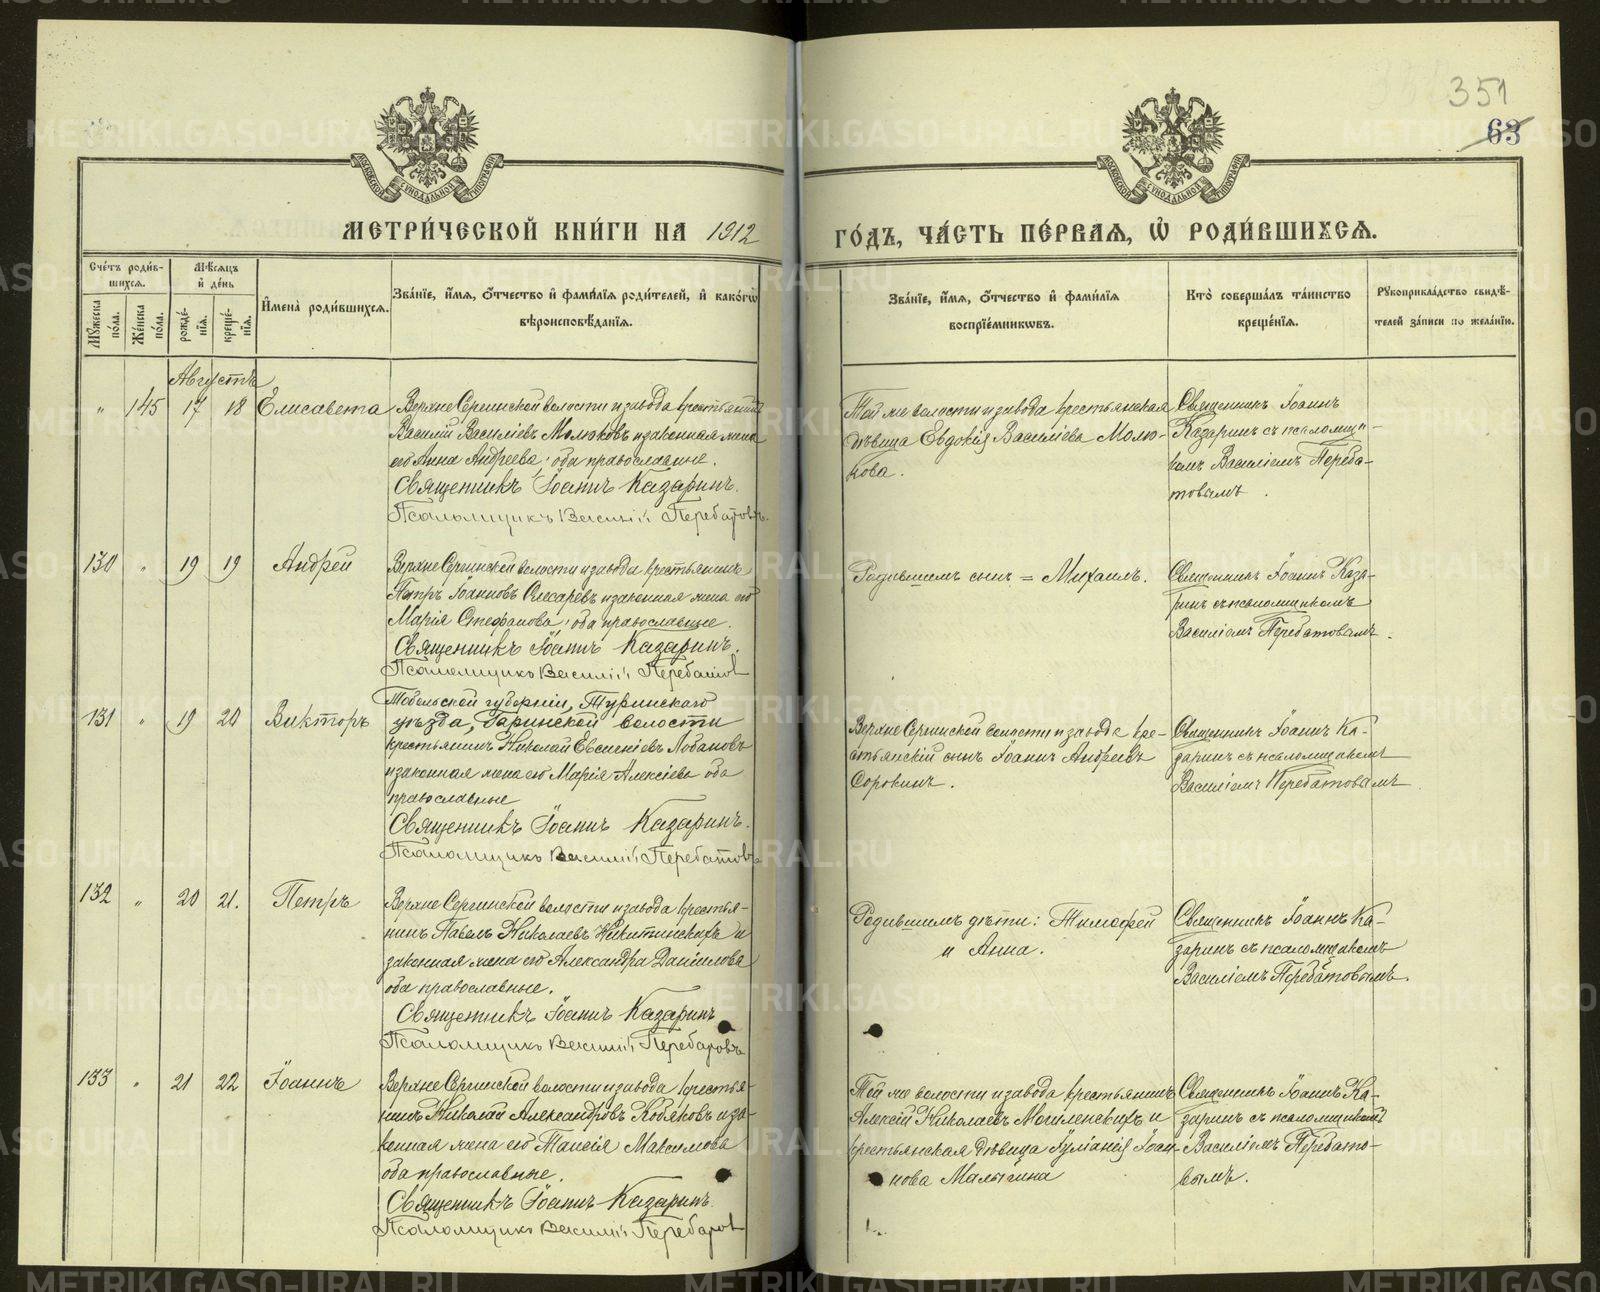 351
63
МОСКОВСКОЙ СѴНОДАЛЬНОЙ ТИПОГРАФІИ
МОСКОВСКОЙ СѴНОДАЛЬНОЙ ТИПОГРАФІИ
МЕТРИ́ЧЕСКОЙ КНИ́ГИ НА 1912
ГО́ДЪ, ЧА́СТЬ ПЕ́РВАЯ, Ѽ РОДИ́ВШИХСЯ.
Сче́тъ роди́в-
шихся.
Мѣ́сяцъ
и҆ де́нь
Мꙋ́жеска по́ла.
Же́нска по́ла.
рожде́-
нїѧ.
креще́-
нїѧ.
И҆мена̀ роди́вшихся.
Зва́нїе, и҆́мѧ, ѻ҆́тчество и҆ фами́лїѧ роди́телей, и҆ како́гѡ
вѣроисповѣ́данїѧ.
Зва́нїе, и҆́мѧ, ѻ҆́тчество и҆ фами́лїѧ
воспрїе́мникѡвъ.
Кто̀ соверша́лъ та́инство
креще́нїѧ.
Рꙋкоприкла́дство свидѣ́-
телей за́писи по жела́нїю.
Августъ
" 145 17 18 Елисавета
Верхне Сергинской волости и завода крестьянинъ
Василій Василіевъ Молюковъ и законная жена
его Анна Андреева, оба православные.
Священникъ Іоаннъ Казаринъ.
Псаломщикъ Василій Перебатовъ.
Той же волости и завода крестьянская
дѣвица Евдокія Василіева Молю-
кова.
Священникъ Іоаннъ
Казаринъ съ псаломщи-
комъ Василіемъ Переба-
товымъ.
130 " 19 19 Андрей
Верхне Сергинской волости и завода крестьянинъ
Петръ Іоанновъ Слесаревъ и законная жена его
Марія Стефанова, оба православные.
Священникъ Іоаннъ Казаринъ.
Псаломщикъ Василій Перебатов
Родившимъ сынъ = Михаилъ.
Священникъ Іоаннъ Каза-
ринъ съ псаломщикомъ
Василіемъ Перебатовымъ.
131 " 19 20 Викторъ
Тобольской губерніи, Туринскаго
уѣзда, Гаринской волости
крестьянинъ Николай Евсеніевъ Лобановъ
и законная жена его Марія Алексіева оба
православные
Священникъ Іоаннъ Казаринъ.
Псаломщикъ Василій Перебатовъ
Верхне Сергинской волости и завода кре-
стьянскій сынъ Іоаннъ Андреевъ
Сорокинъ.
Священникъ Іоаннъ Ка-
заринъ съ псаломщикомъ
Василіемъ Перебатовымъ
132 " 20 21. Петръ
Верхне Сергинской волости и завода крестья-
нинъ Павелъ Николаевъ Никитинскихъ и
законная жена его Александра Даніилова
оба православные.
Священникъ Іоаннъ Казаринъ
Псаломщикъ Василій Перебатовъ
Родившимъ дѣти: Тимофей
и Анна.
Священникъ Іоаннъ Ка-
заринъ съ псаломщикомъ
Василіемъ Перебатовымъ.
133 " 21 22 Іоаннъ
Верхне Сергинской волости и завода крестья-
нинъ Николай Александровъ Кобяковъ и за-
конная жена его Таисія Максимова
оба православные.
Священникъ Іоаннъ Казаринъ
Псаломщикъ Василій Перебатов
Той же волости и завода крестьянинъ
Алексій Николаевъ Могиленскихъ и
крестьянская дѣвица Іуліанія Іоан-
нова Малыгина
Священникъ Іоаннъ Ка-
заринъ съ псаломщикомъ
Василіемъ Перебато-
вымъ.
METRIKI.GASO-URAL.RU